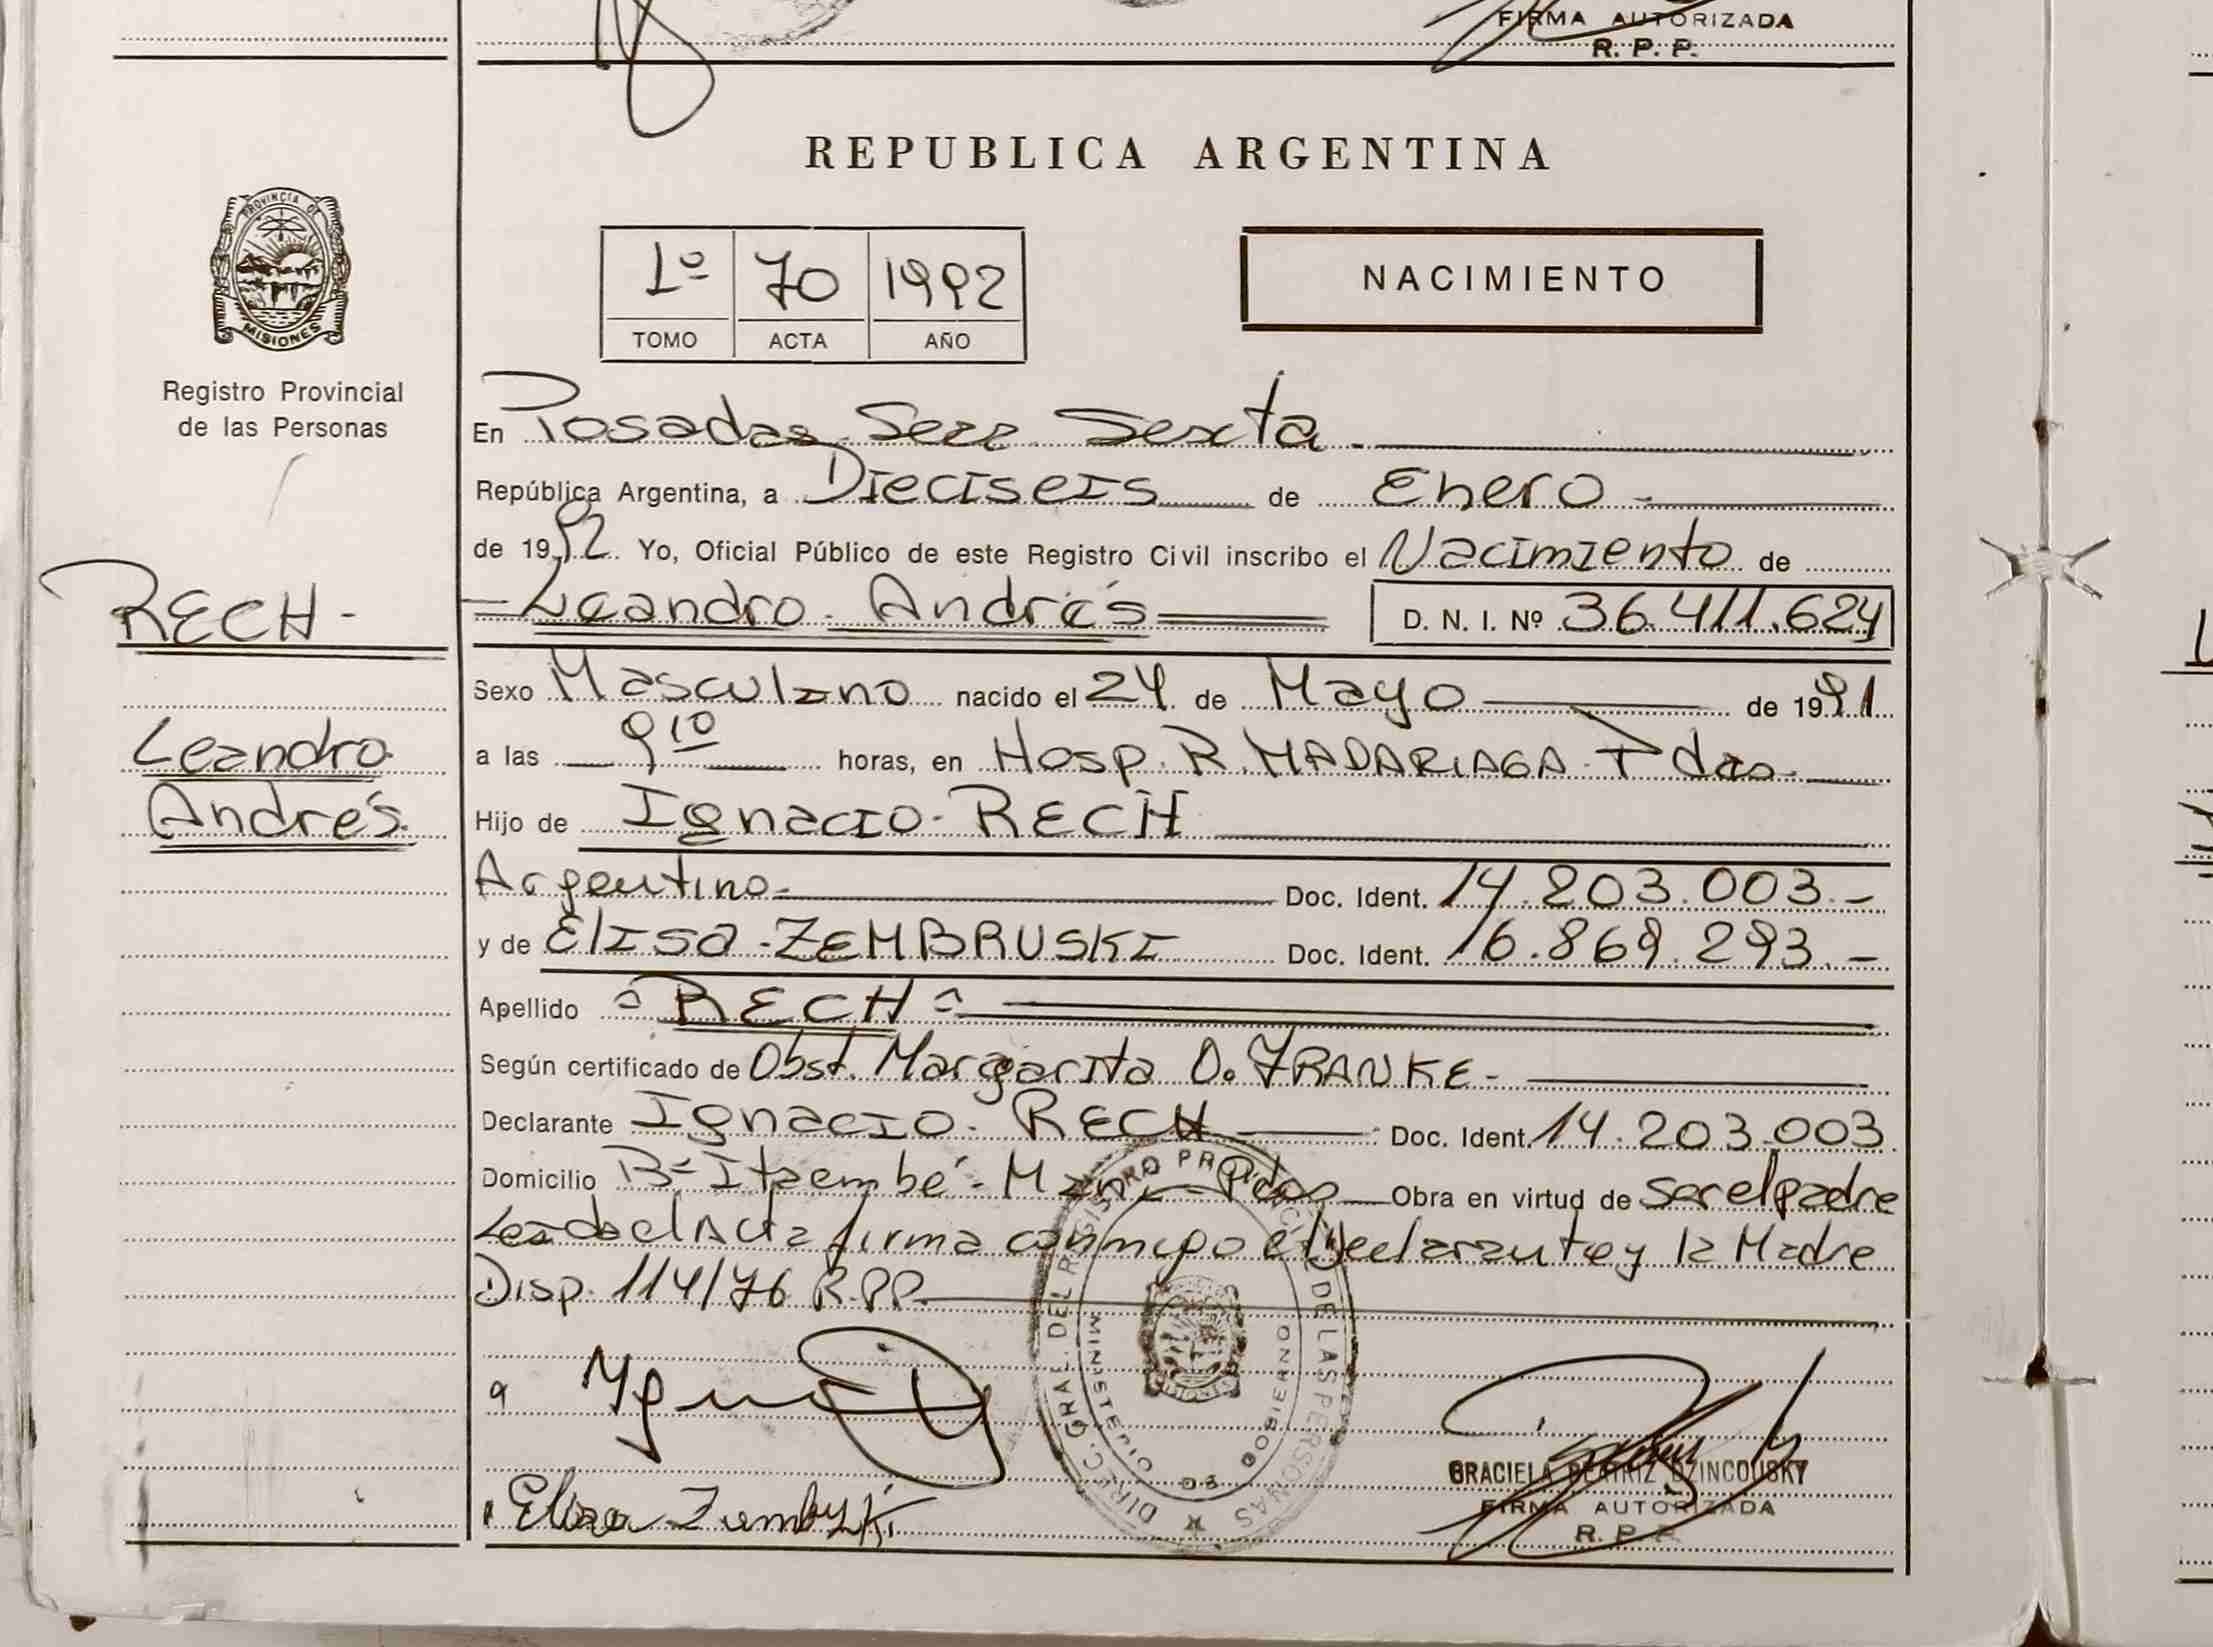 FIRMA AUTORIZADA
R. P. P.
REPUBLICA ARGENTINA
PROVINCIA DE
MISIONES
Registro Provincial
de las Personas
1º 70 1992
TOMO ACTA AÑO
NACIMIENTO
En Posadas Secc Sexta.
República Argentina, a Dieciseis de Enero
de 1992 Yo, Oficial Público de este Registro Civil inscribo el Nacimiento de
Leandro Andrés D. N. I. Nº 36.411.624
RECH-
Leandro
Andrés
Sexo Masculino nacido el 24 de Mayo de 1991
a las 9 10 horas, en Hosp. R. MADARIAGA Pdas
Hijo de Ignacio RECH
Argentino Doc. Ident. 14.203.003.-
y de Elisa ZEMBRUSKI Doc. Ident. 16.869.293.-
Apellido = RECH =
Según certificado de Obst. Margarita O. FRANKE-
Declarante Ignacio RECH Doc. Ident. 14.203.003
Domicilio Bº Itaembé Miní Pdas Obra en virtud de ser el padre
Leída el Acta firma conmigo el Declarante y la Madre
Disp. 114/76 R.P.P.
DIREC. GRAL. DEL REGISTRO PROVINCIAL DE LAS PERSONAS
MINISTERIO DE GOBIERNO
MISIONES
GRACIELA BEATRIZ DZINCOUSKY
FIRMA AUTORIZADA
R. P. P.